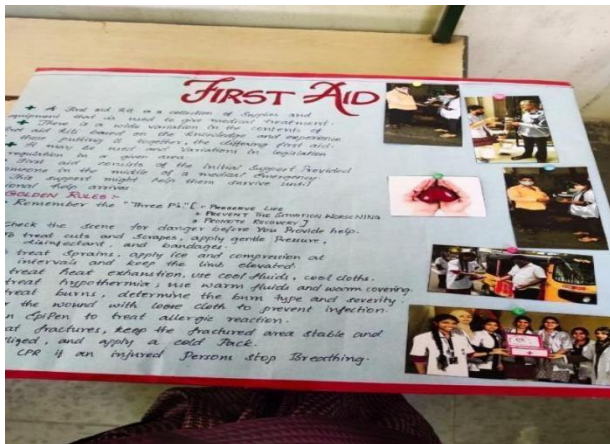 FIRST AID
A First aid kit is a collection of supplies and
equipment that is used to give medical treatment.
There is a wide variation in the contents of
first aid kits based on the knowledge and experience
those putting it together, the differing first aid
It may be used and variations in legislation
regulation in a given area.
First aid consists of the initial support Provided
someone in the middle of a medical emergency
This support might help them survive until
ional help arrives.
GOLDEN RULES :-
Remember the "Three P's" [ - PRESERVE LIFE
PREVENT THE SITUATION WORSENING
PROMOTE RECOVERY ]
Check the scene for danger before You Provide help.
To treat cuts and scrapes, apply gentle Pressure,
disinfectant, and bandages.
treat sprains, apply ice and compression at
intervals and keep the limb elevated.
treat heat exhaustion, use cool fluids, cool cloths.
treat hypothermia, use warm fluids and warm covering.
treat burns, determine the burn type and severity.
the wound with loose cloth to prevent infection.
n EpiPen to treat allergic reaction.
at fractures, keep the fractured area stable and
lized, and apply a cold Pack.
CPR if an injured Person stop Breathing.